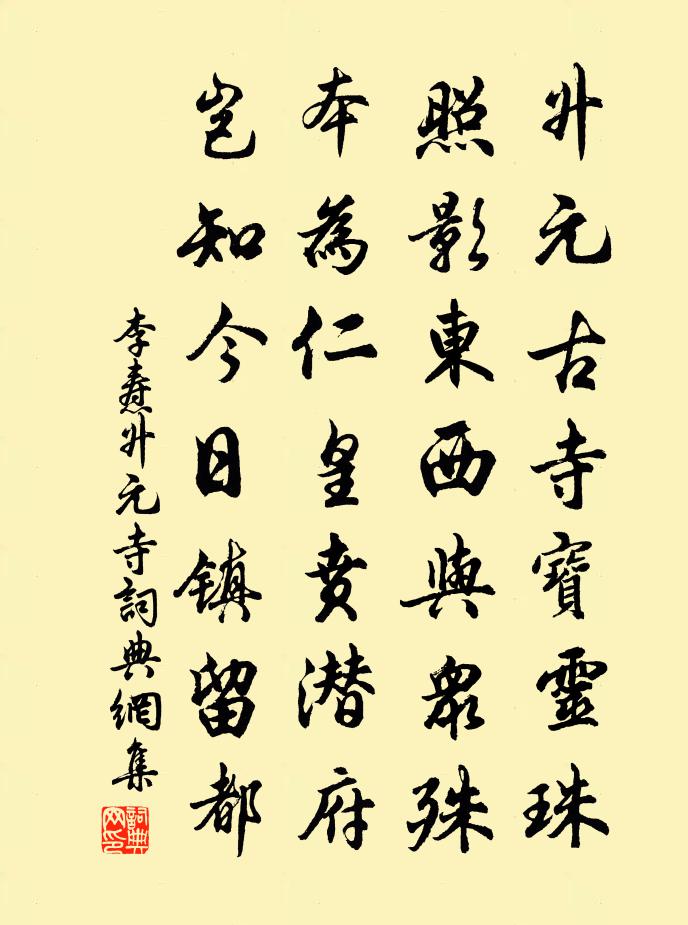 升元古寺寶靈珠
照影東西與衆殊
本為仁皇賁潜府
岂知今日镇留都
李燾升元寺詞典網集
詞典网印